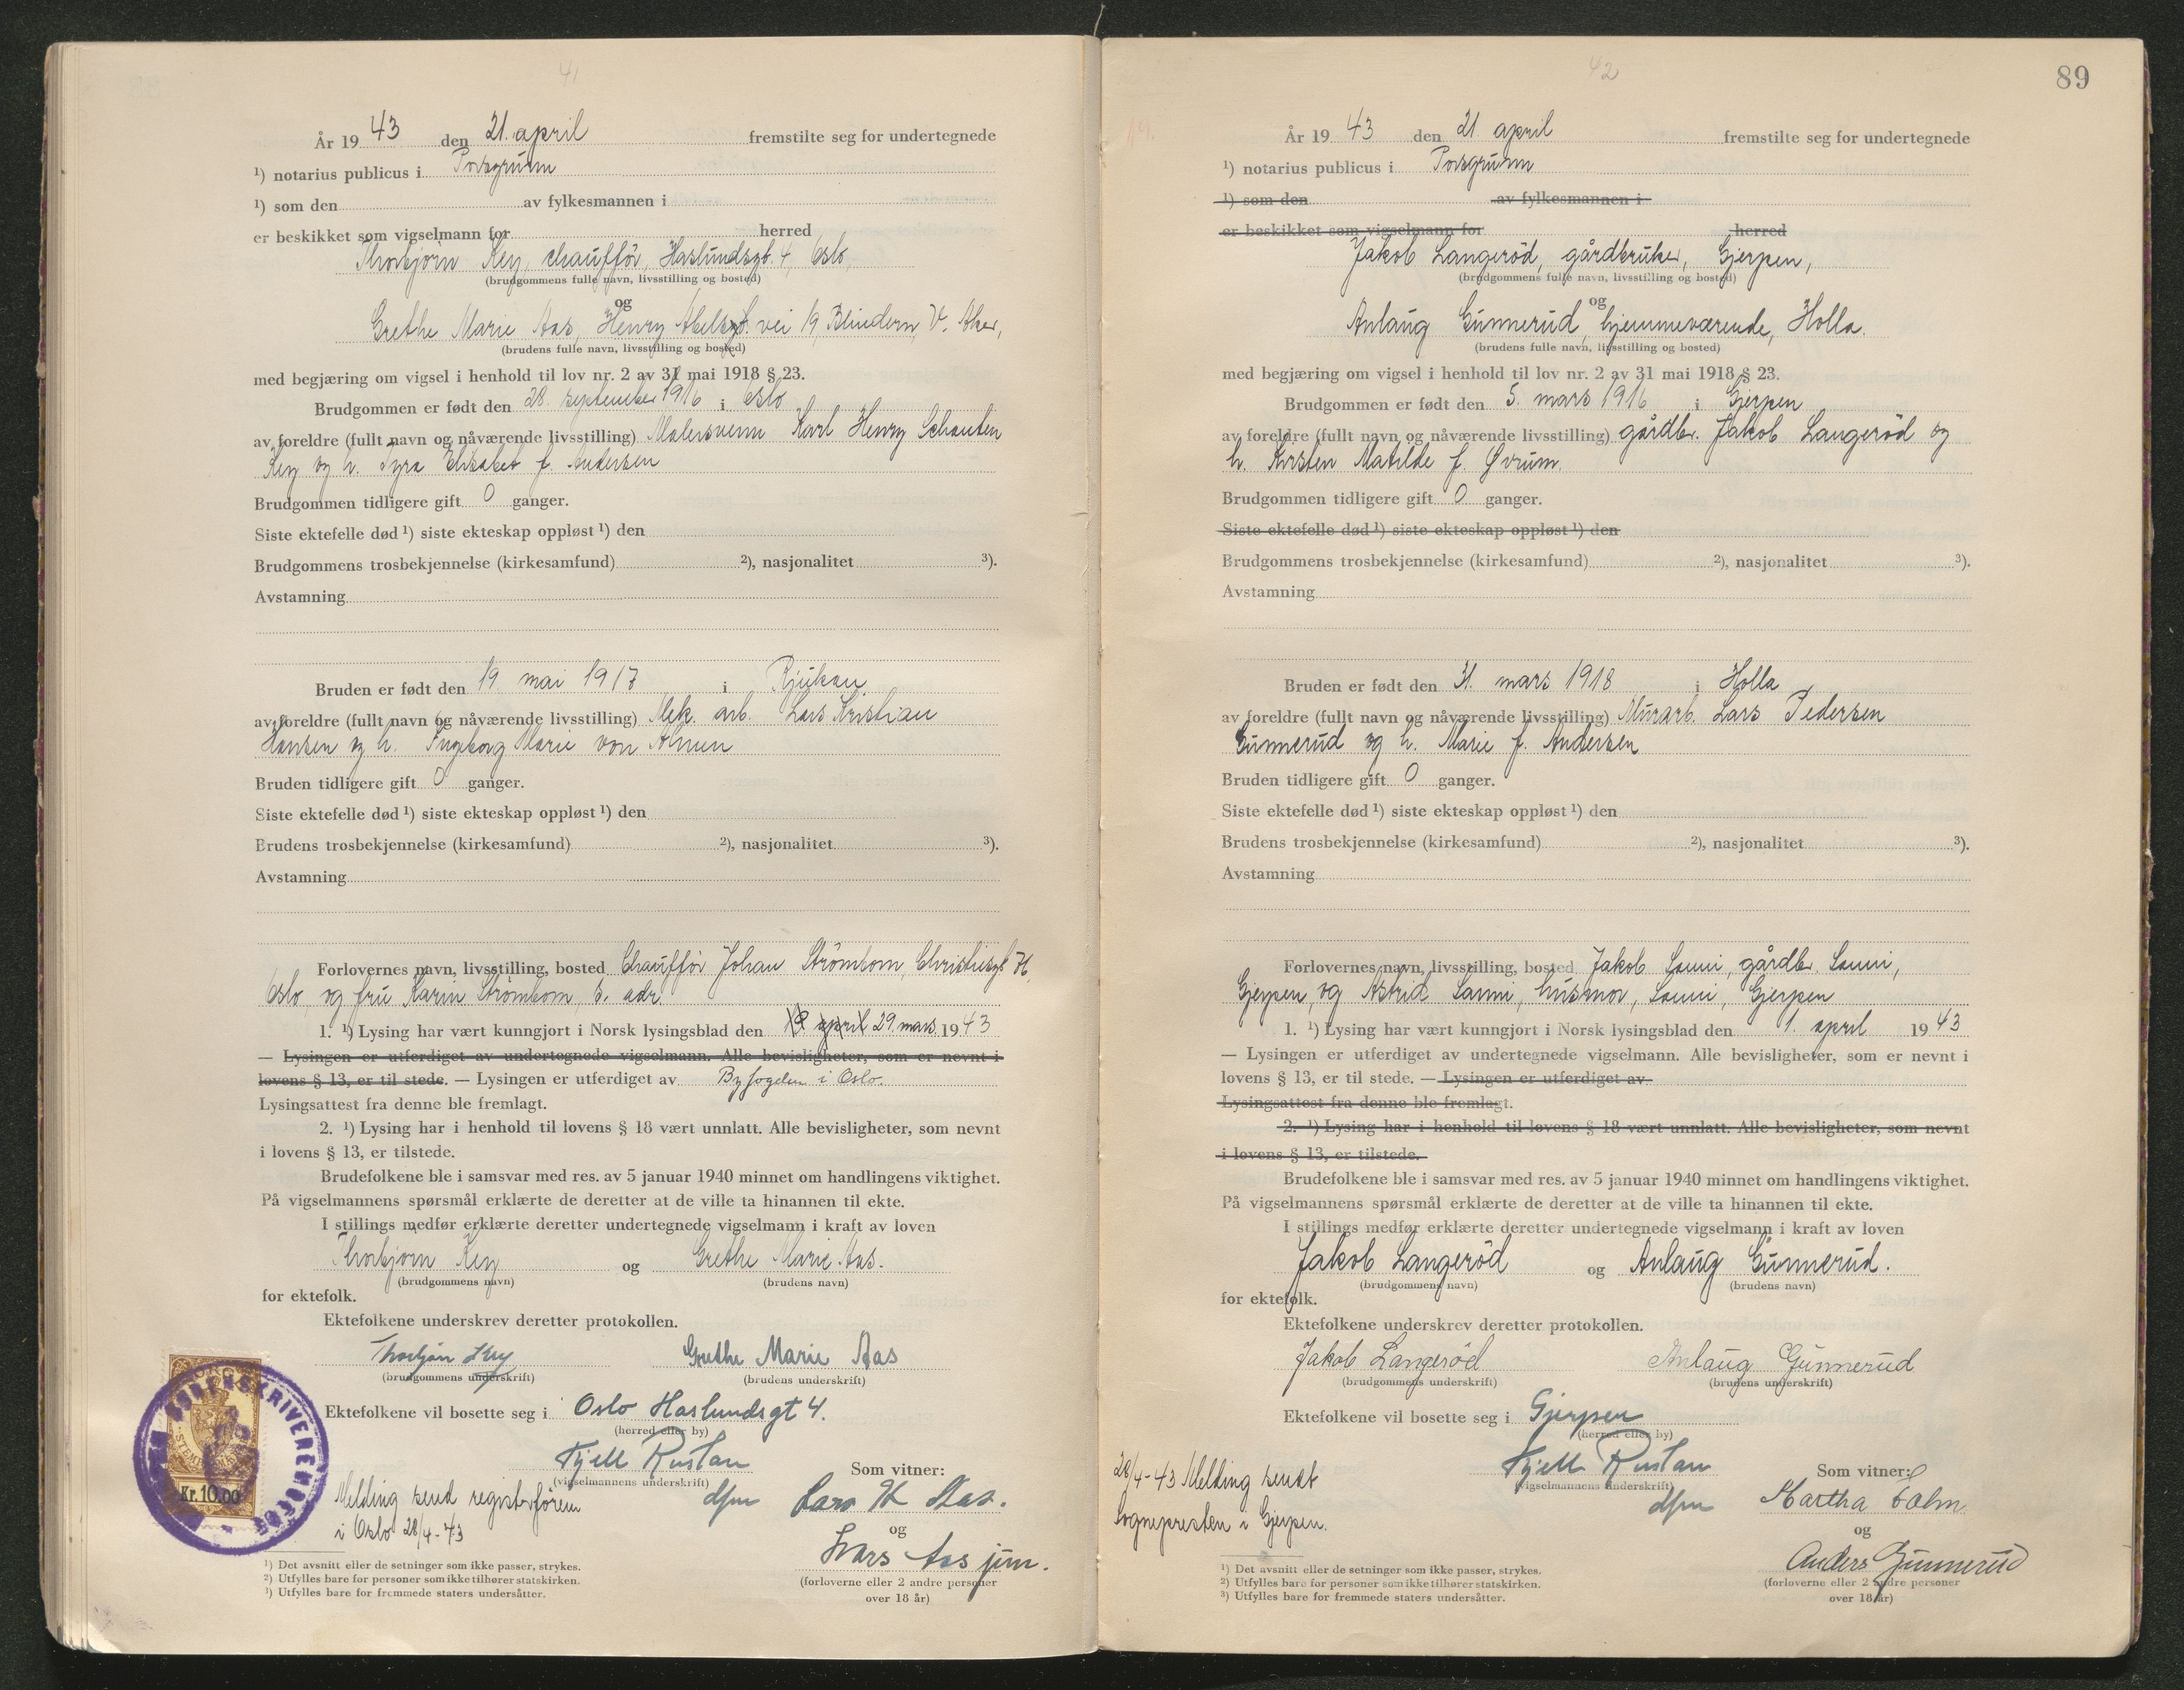 41
År 19 43 den 21. april fremstilte seg for undertegnede
¹) notarius publicus i Porsgrunn
¹) som den av fylkesmannen i
er beskikket som vigselmann for herred
Thorbjörn Rey, chaufför, Haslundsgt. 4, Oslo,
(brudgommens fulle navn, livsstilling og bosted)
og
Grethe Marie Aas, Henry Abelsgt. vei 19, Blindern, V. Aker,
(brudens fulle navn, livsstilling og bosted)
med begjæring om vigsel i henhold til lov nr. 2 av 31 mai 1918 § 23.
Brudgommen er født den 28. september 1916 i Oslo
av foreldre (fullt navn og nåværende livsstilling) Malersvenn Karl Henry
Rey og h. Tyra Elisabet f. Andersen
Brudgommen tidligere gift 0 ganger.
Siste ektefelle død ¹) siste ekteskap oppløst ¹) den
Brudgommens trosbekjennelse (kirkesamfund) ²), nasjonalitet ³).
Avstamning
Bruden er født den 19. mai 1917 i Rjukan
av foreldre (fullt navn og nåværende livsstilling) Mek. arb. Lars Kristian
Hansen og h. Ingeborg Marie von
Bruden tidligere gift 0 ganger.
Siste ektefelle død ¹) siste ekteskap oppløst ¹) den
Brudens trosbekjennelse (kirkesamfund) ²), nasjonalitet ³).
Avstamning
Forlovernes navn, livsstilling, bosted Chaufför Johan Strömbom,
Oslo, og fru Karin Strömbom, s. adr.
1. ¹) Lysing har vært kunngjort i Norsk lysingsblad den april 29. mars 19 43
— Lysingen er utferdiget av undertegnede vigselmann. Alle bevisligheter, som er nevnt i
lovens § 13, er til stede. — Lysingen er utferdiget av Byfogden i Oslo.
Lysingsattest fra denne ble fremlagt.
2. ¹) Lysing har i henhold til lovens § 18 vært unnlatt. Alle bevisligheter, som nevnt
i lovens § 13, er tilstede.
Brudefolkene ble i samsvar med res. av 5 januar 1940 minnet om handlingens viktighet.
På vigselmannens spørsmål erklærte de deretter at de ville ta hinannen til ekte.
I stillings medfør erklærte deretter undertegnede vigselmann i kraft av loven
Thorbjörn Rey og Grethe Marie Aas.
(brudgommens navn) (brudens navn)
for ektefolk.
Ektefolkene underskrev deretter protokollen.
Thorbjörn Rey Grethe Marie Aas
(brudgommens underskrift) (brudens underskrift)
Ektefolkene vil bosette seg i Oslo Haslundsgt 4.
(herred eller by)
Kjell Rustan
(vigselmannens underskrift)
dfm
Som vitner:
Lars K Aas.
og
Lars Aas jun.
(forloverne eller 2 andre personer
over 18 år)
Melding send registerføren
i Oslo 28/4-43
SORENSKRIVEREN
Kr. 10.00
¹) Det avsnitt eller de setninger som ikke passer, strykes.
²) Utfylles bare for personer som ikke tilhører statskirken.
³) Utfylles bare for fremmede staters undersåtter.
42
89
År 19 43 den 21. april fremstilte seg for undertegnede
¹) notarius publicus i Porsgrunn
¹) som den av fylkesmannen i
er beskikket som vigselmann for herred
Jakob Langeröd, gårdbruker, Gjerpen,
(brudgommens fulle navn, livsstilling og bosted)
og
Anlaug Gunnerud, hjemmeværende, Holla.
(brudens fulle navn, livsstilling og bosted)
med begjæring om vigsel i henhold til lov nr. 2 av 31 mai 1918 § 23.
Brudgommen er født den 5. mars 1916 i Gjerpen
av foreldre (fullt navn og nåværende livsstilling) gårdbr. Jakob Langeröd og
h. Kirsten Matilde f. Øvrum.
Brudgommen tidligere gift 0 ganger.
Siste ektefelle død ¹) siste ekteskap oppløst ¹) den
Brudgommens trosbekjennelse (kirkesamfund) ²), nasjonalitet ³).
Avstamning
Bruden er født den 31. mars 1918 i Holla
av foreldre (fullt navn og nåværende livsstilling) Murarb. Lars Pedersen
Gunnerud og h. Marie f. Andersen
Bruden tidligere gift 0 ganger.
Siste ektefelle død ¹) siste ekteskap oppløst ¹) den
Brudens trosbekjennelse (kirkesamfund) ²), nasjonalitet ³).
Avstamning
Forlovernes navn, livsstilling, bosted Jakob Sanni, gårdbr. Sanni,
Gjerpen, og Astrid Sanni, husmor, Sanni, Gjerpen
1. ¹) Lysing har vært kunngjort i Norsk lysingsblad den 1. april 19 43
— Lysingen er utferdiget av undertegnede vigselmann. Alle bevisligheter, som er nevnt i
lovens § 13, er til stede. — Lysingen er utferdiget av
Lysingsattest fra denne ble fremlagt.
2. ¹) Lysing har i henhold til lovens § 18 vært unnlatt. Alle bevisligheter, som nevnt
i lovens § 13, er tilstede.
Brudefolkene ble i samsvar med res. av 5 januar 1940 minnet om handlingens viktighet.
På vigselmannens spørsmål erklærte de deretter at de ville ta hinannen til ekte.
I stillings medfør erklærte deretter undertegnede vigselmann i kraft av loven
Jakob Langeröd og Anlaug Gunnerud.
(brudgommens navn) (brudens navn)
for ektefolk.
Ektefolkene underskrev deretter protokollen.
Jakob Langeröd Anlaug Gunnerud
(brudgommens underskrift) (brudens underskrift)
Ektefolkene vil bosette seg i Gjerpen
(herred eller by)
Kjell Rustan
(vigselmannens underskrift)
dfm
Som vitner:
Martha Holm
og
Anders Gunnerud
(forloverne eller 2 andre personer
over 18 år)
28/4-43 Melding sendt
Sognepresten i Gjerpen.
¹) Det avsnitt eller de setninger som ikke passer, strykes.
²) Utfylles bare for personer som ikke tilhører statskirken.
³) Utfylles bare for fremmede staters undersåtter.